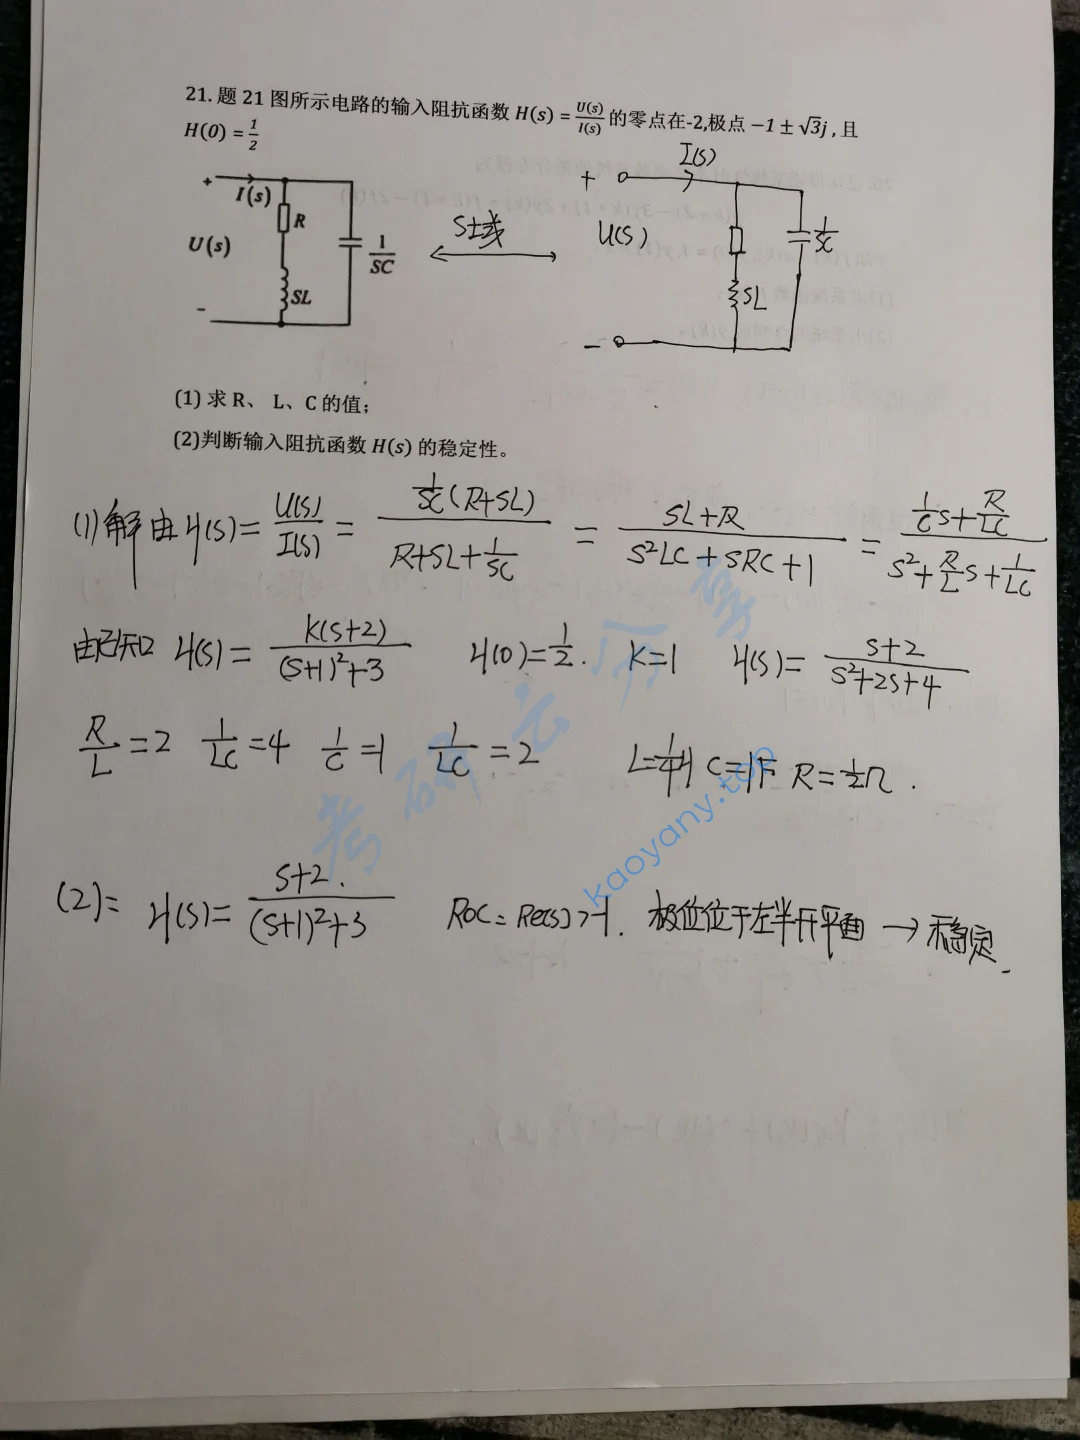 21. 题 21 图所示电路的输入阻抗函数 H(s) = U(s)/I(s) 的零点在-2,极点 −1 ± √3j , 且
H(0) = 1/2
+ I(s) R U(s) 1/SC SL -
S域
I(s) + U(s) 1/SC SL -
(1) 求 R、 L、C 的值；
(2)判断输入阻抗函数 H(s) 的稳定性。
(1) 解 由 H(s) = U(s)/I(s) = 1/SC (R+SL) / (R+SL+1/SC) = (SL+R) / (S²LC+SRC+1) = (1/C S + R/LC) / (S² + R/L S + 1/LC)
由已知 H(s) = K(s+2) / ((s+1)²+3) H(0)=1/2. K=1 H(s) = (s+2) / (s²+2s+4)
R/L =2 1/LC =4 1/C =1 1/LC =2 L=1/4H C=1F R=1/2Ω .
(2)= H(s)= (s+2.) / ((s+1)²+3) ROC = Re(s) >-1. 极位位于左半开平面 → 稳定.
考研云分享
kaoyany.top